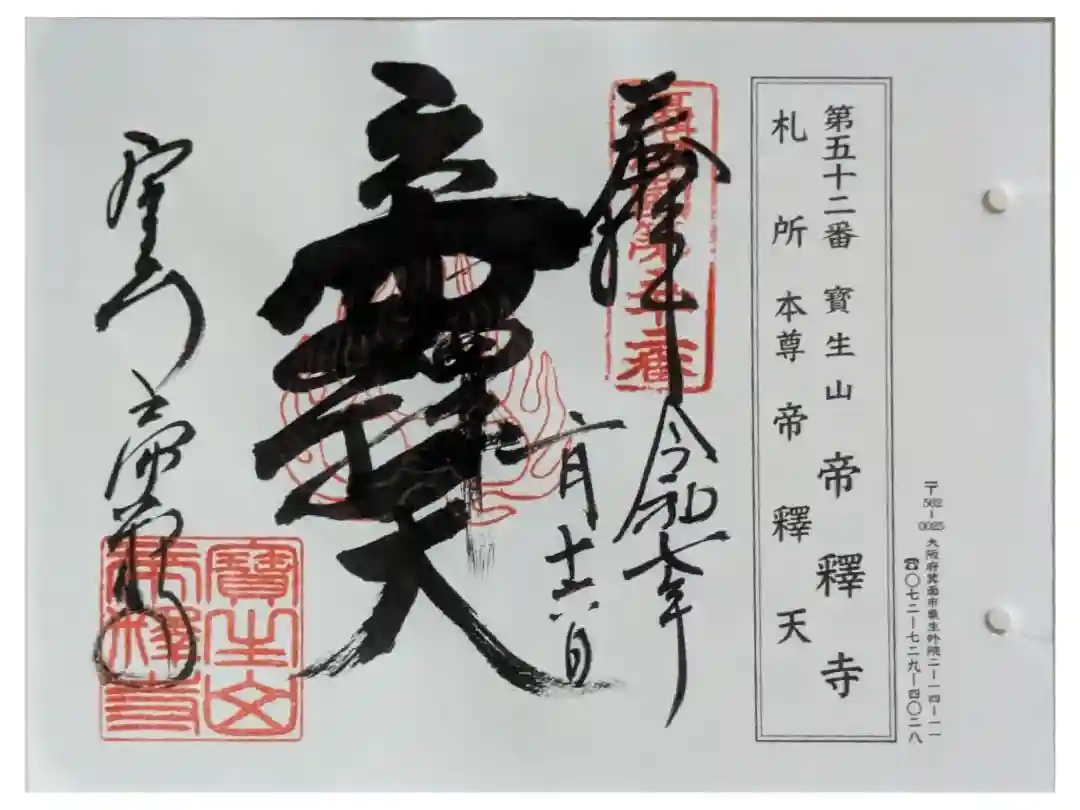 〒562-0025 大阪府箕面市粟生外院二ー一四ー一一
☎〇七二ー七二九ー四〇二八
第五十二番 寶生山 帝釋寺
札所本尊 帝釋天
攝津國第五十二番
奉拝
令和七年
二月十六日
帝釋天
寶生山
帝釋寺